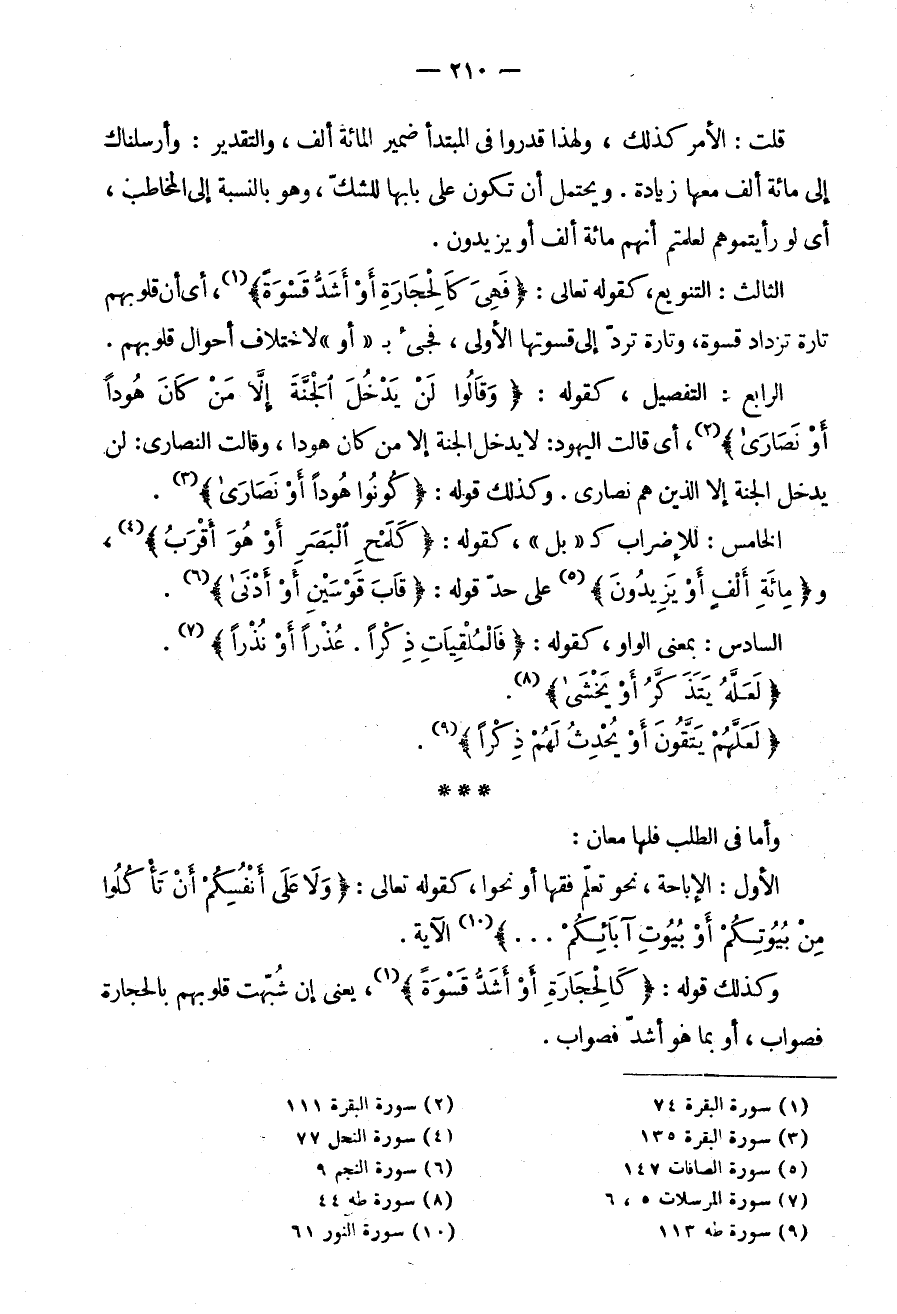 — ٢١٠ —
قلت : الأمر كذلك ، ولهذا قدروا فى المبتدأ ضمير المائة ألف ، والتقدير : وأرسلناك
إلى مائة ألف معها زيادة . ويحتمل أن تكون على بابها للشكّ ، وهو بالنسبة إلى المخاطب ،
أى لو رأيتموهم لعلمتم أنهم مائة ألف أو يزيدون .
الثالث : التنويع، كقوله تعالى : ﴿ فَهِىَ كَالْحِجَارَةِ أَوْ أَشَدُّ قَسْوَةً﴾(١) ، أى أن قلوبهم
تارة تزداد قسوة، وتارة تردّ إلى قسوتها الأولى ، فجىء بـ « أو » لاختلاف أحوال قلوبهم .
الرابع : التفصيل ، كقوله : ﴿ وَقَالُوا لَنْ يَدْخُلَ ٱلْجَنَّةَ إِلَّا مَنْ كَانَ هُوداً
أَوْ نَصَارَىٰ ﴾(٢) ، أى قالت اليهود: لايدخل الجنة إلا من كان هودا ، وقالت النصارى: لن
يدخل الجنة إلا الذين هم نصارى . وكذلك قوله : ﴿ كُونُوا هُوداً أَوْ نَصَارَىٰ﴾(٣) .
الخامس : للإضراب كـ « بل » ، كقوله : ﴿ كَلَمْحِ ٱلْبَصَرِ أَوْ هُوَ أَقْرَبُ ﴾(٤) ،
و ﴿ مِائَةِ أَلْفٍ أَوْ يَزِيدُونَ ﴾ (٥) على حدّ قوله : ﴿ قَابَ قَوْسَيْنِ أَوْ أَدْنَىٰ ﴾(٦) .
السادس : بمعنى الواو ، كقوله : ﴿ فَالْمُلْقِيَاتِ ذِكْراً . عُذْراً أَوْ نُذْراً ﴾ (٧) .
﴿ لَعَلَّهُ يَتَذَكَّرُ أَوْ يَخْشَىٰ ﴾ (٨) .
﴿ لَعَلَّهُمْ يَتَّقُونَ أَوْ يُحْدِثُ لَهُمْ ذِكْراً ﴾(٩) .
***
وأما فى الطلب فلها معان :
الأول : الإباحة ، نحو تعلّم فقها أو نحوا ، كقوله تعالى : ﴿ وَلَا عَلَى أَنْفُسِكُمْ أَنْ تَأْكُلُوا
مِنْ بُيُوتِكُمْ أَوْ بُيُوتِ آبَائِكُمْ . . . ﴾(١٠) الآية .
وكذلك قوله : ﴿ كَالْحِجَارَةِ أَوْ أَشَدُّ قَسْوَةً ﴾(١) ، يعنى إن شُبّهت قلوبهم بالحجارة
فصواب ، أو بما هو أشدّ فصواب .
(١) سورة البقرة ٧٤ (٢) سورة البقرة ١١١
(٣) سورة البقرة ١٣٥ (٤) سورة النحل ٧٧
(٥) سورة الصافات ١٤٧ (٦) سورة النجم ٩
(٧) سورة المرسلات ٥ ، ٦ (٨) سورة طه ٤٤
(٩) سورة طه ١١٣ (١٠) سورة النور ٦١